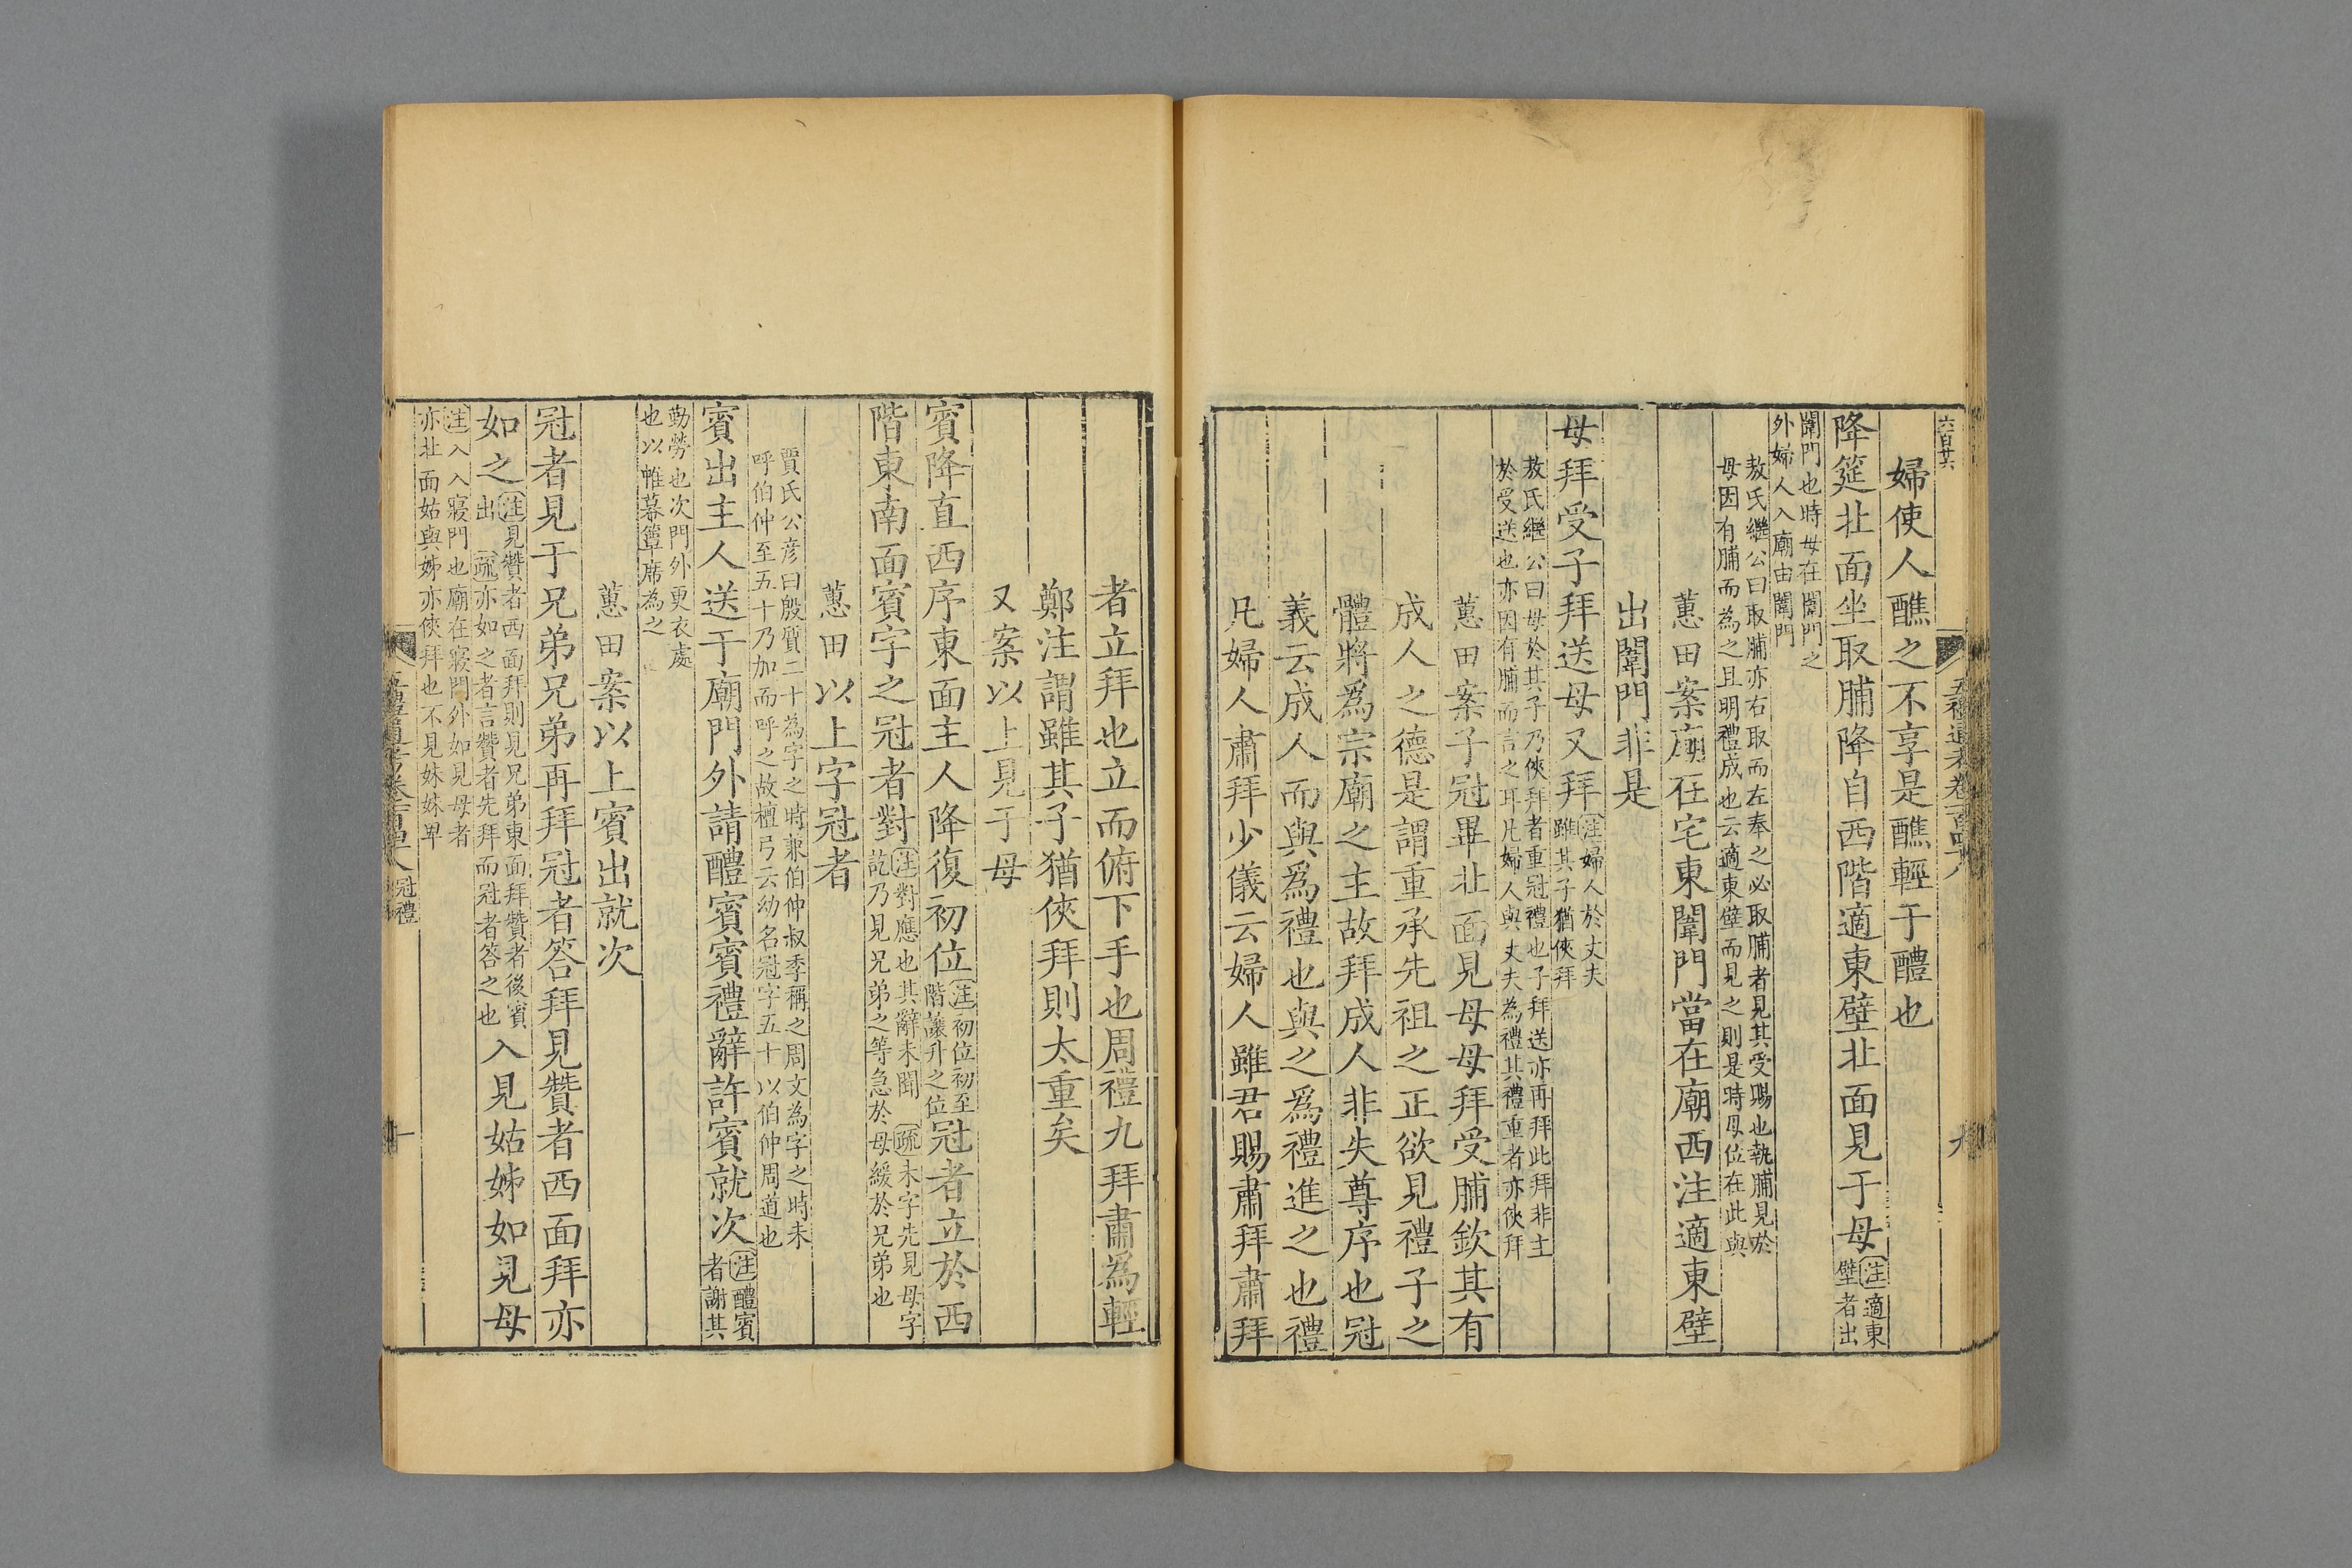 六百廿六
五禮通考卷一百四十八
九
婦使人醮之不享是醮輕于醴也
降筵北面坐取脯降自西階適東壁北面見于母
注適東
壁者出
闈門也時母在闈門之
外婦人入廟由闈門
敖氏繼公曰取脯亦右取而左奉之必取脯者見其受賜也執脯見於
母因有脯而為之且明禮成也云適東壁而見之則是時母位在此與
蕙田案廟在宅東闈門當在廟西注適東壁
出闈門非是
母拜受子拜送母又拜
注婦人於丈夫
雖其子猶俠拜
敖氏繼公曰母於其子乃俠拜者重冠禮也子拜送亦再拜此拜非主
於受送也亦因有脯而言之耳凡婦人與丈夫為禮其禮重者亦俠拜
蕙田案子冠畢北面見母母拜受脯欽其有
成人之德是謂重承先祖之正欲見禮子之
體將爲宗廟之主故拜成人非失尊序也冠
義云成人而與爲禮也與之爲禮進之也禮
凡婦人肅拜少儀云婦人雖君賜肅拜肅拜
者立拜也立而俯下手也周禮九拜肅爲輕
鄭注謂雖其子猶俠拜則太重矣
又案以上見于母
賓降直西序東面主人降復初位
注初位初至
階讓升之位
冠者立於西
階東南面賓字之冠者對
注對應也其辭未聞 疏未字先見母字
訖乃見兄弟之等急於母緩於兄弟也
蕙田以上字冠者
賈氏公彦曰殷質二十為字之時兼伯仲叔季稱之周文為字之時未
呼伯仲至五十乃加而呼之故檀弓云幼名冠字五十以伯仲周道也
賓出主人送于廟門外請醴賓賓禮辭許賓就次
注醴賓
者謝其
勤勞也次門外更衣處
也以帷幕簟席為之
蕙田案以上賓出就次
冠者見于兄弟兄弟再拜冠者答拜見贊者西面拜亦
如之
注見贊者西面拜則見兄弟東面拜贊者後賓
出 疏亦如之者言贊者先拜而冠者答之也
入見姑姊如見母
注入入寢門也廟在寢門外如見母者
亦北面姑與姊亦俠拜也不見妹妹卑
冠禮